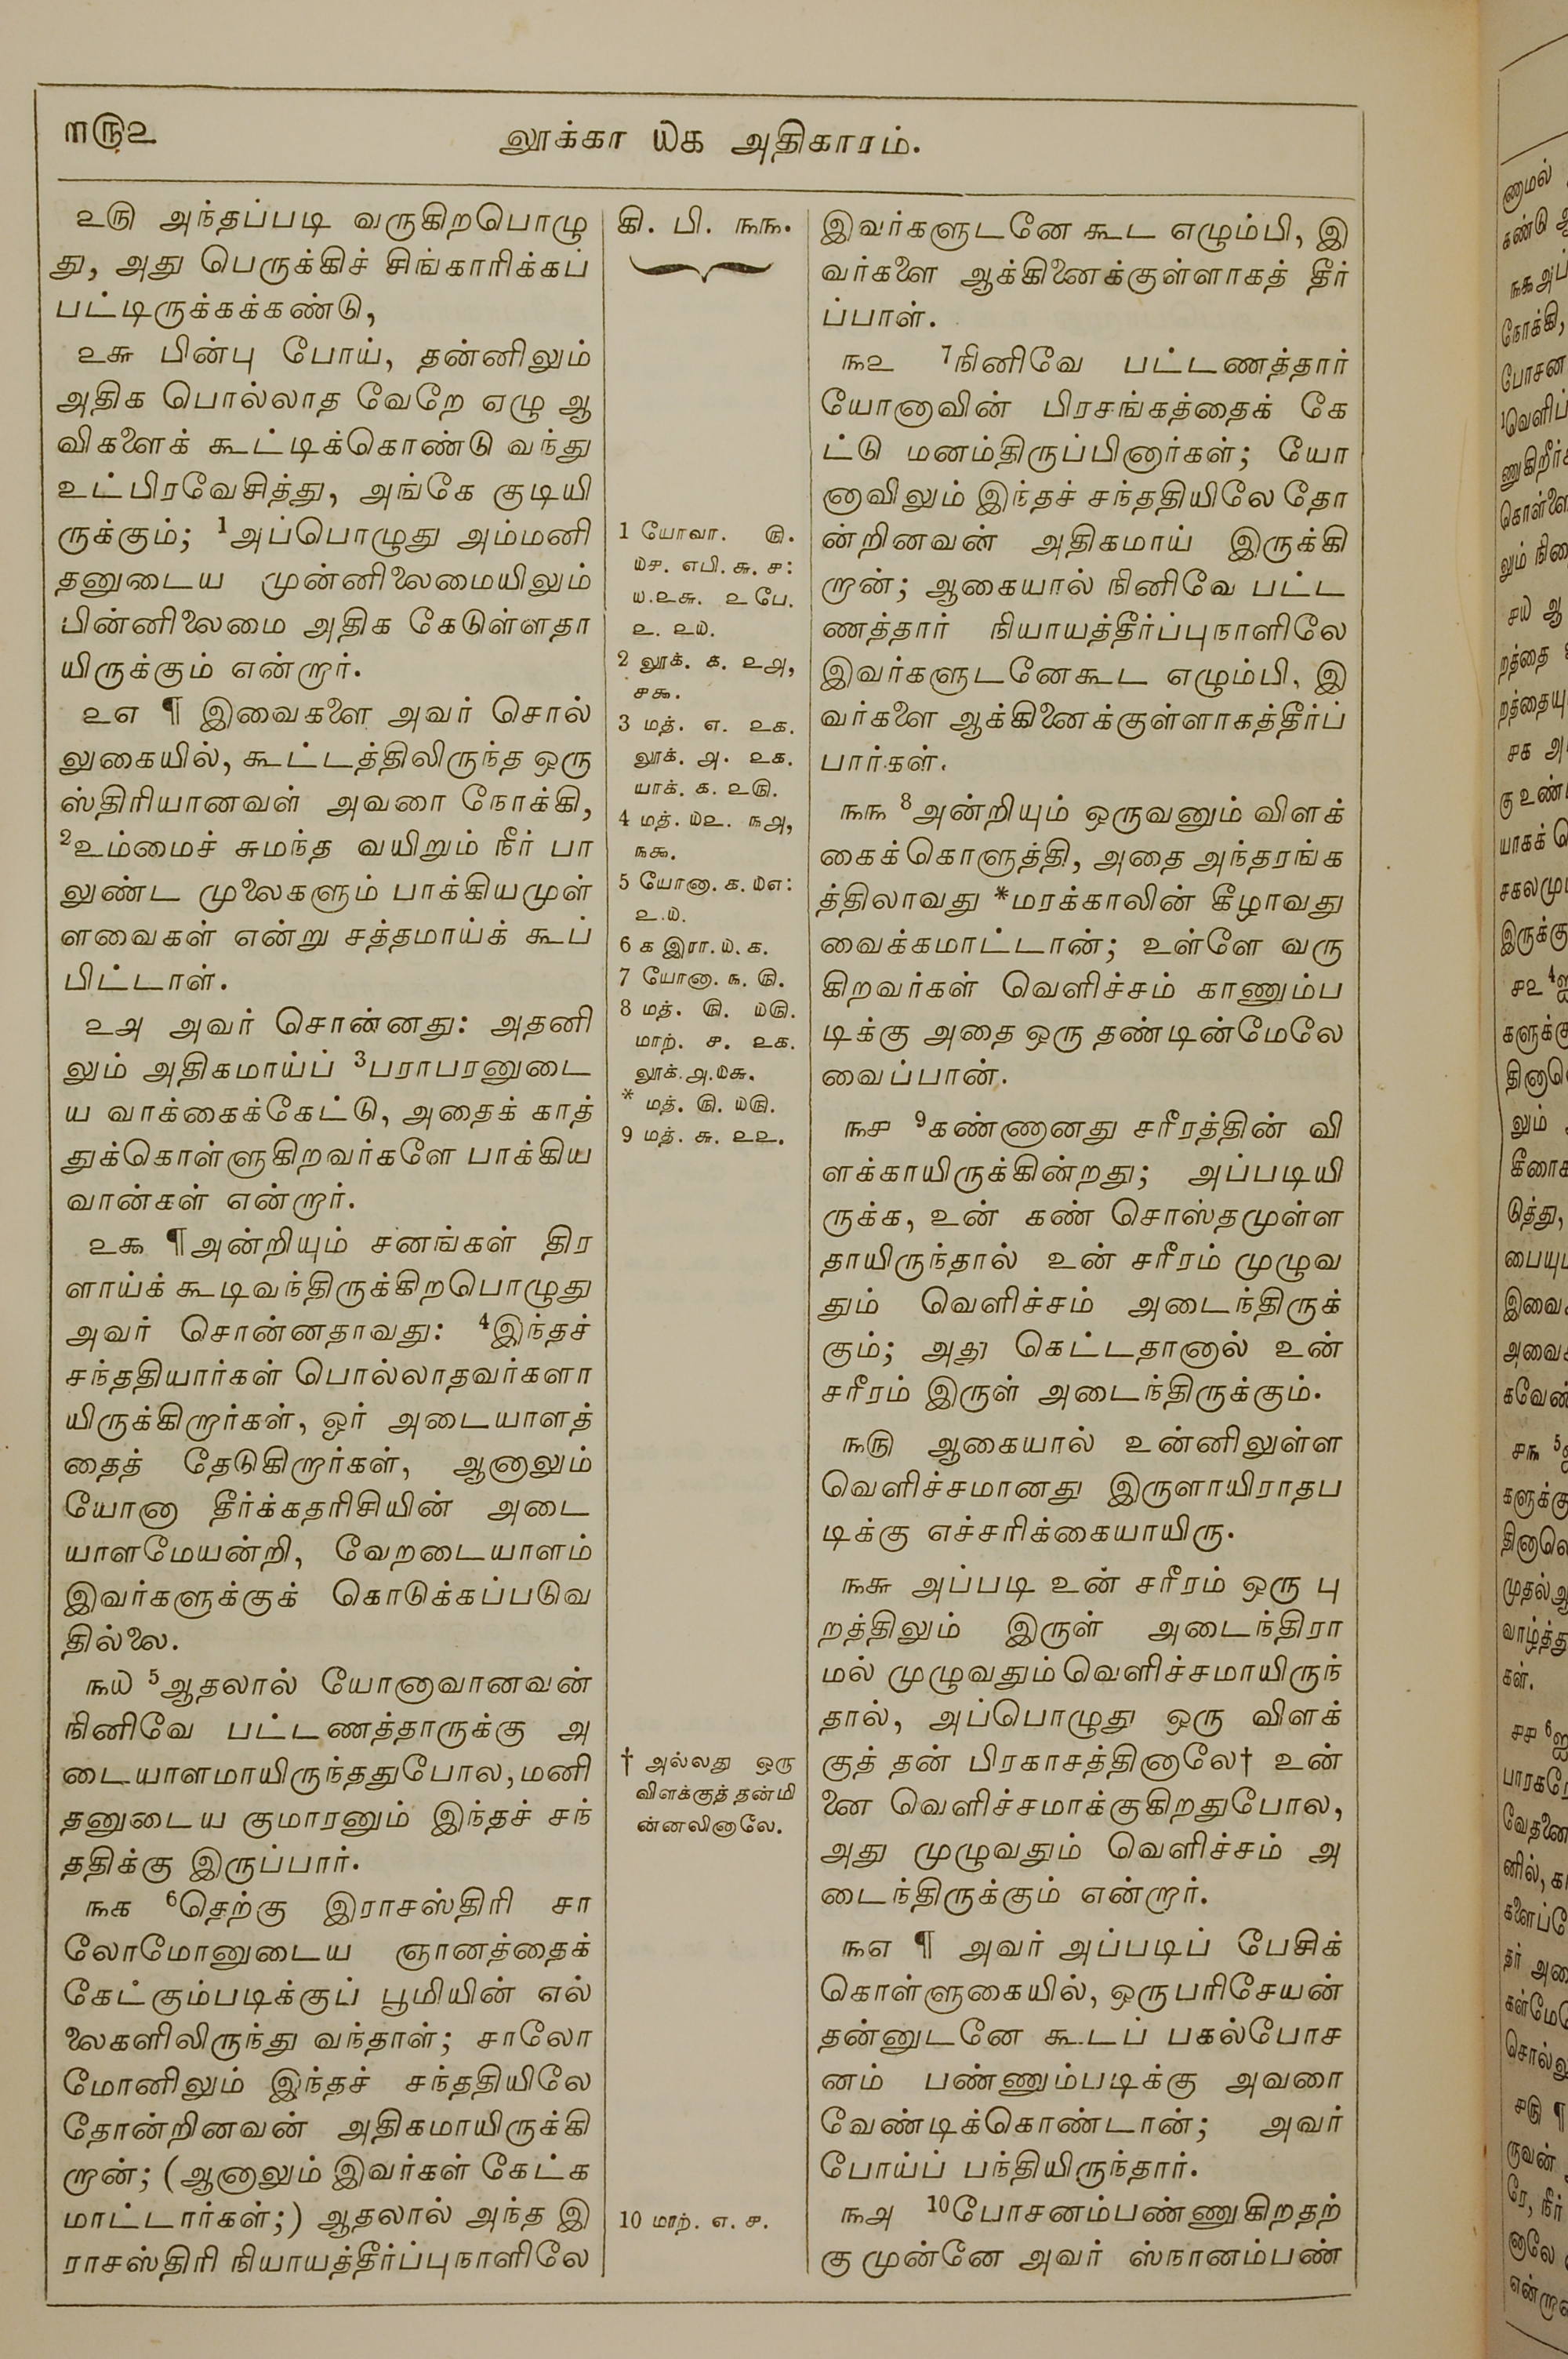 ௱௫௨
லூக்கா ௰௧ அதிகாரம்.
௨௫ அந்தப்படி வருகிறபொழு
து, அது பெருக்கிச் சிங்காரிக்கப்
பட்டிருக்கக்கண்டு,
௨௬ பின்பு போய், தன்னிலும்
அதிக பொல்லாத வேறே ஏழு ஆ
விகளைக் கூட்டிக்கொண்டு வந்து
உட்பிரவேசித்து, அங்கே குடியி
ருக்கும்; 1அப்பொழுது அம்மனி
தனுடைய முன்னிலைமையிலும்
பின்னிலைமை அதிக கேடுள்ளதா
யிருக்கும் என்றார்.
௨௭ ¶ இவைகளை அவர் சொல்
லுகையில், கூட்டத்திலிருந்த ஒரு
ஸ்திரியானவள் அவரை நோக்கி,
2உம்மைச் சுமந்த வயிறும் நீர் பா
லுண்ட முலைகளும் பாக்கியமுள்
ளவைகள் என்று சத்தமாய்க் கூப்
பிட்டாள்.
௨௮ அவர் சொன்னது: அதனி
லும் அதிகமாய்ப் 3பராபரனுடை
ய வாக்கைக்கேட்டு, அதைக் காத்
துக்கொள்ளுகிறவர்களே பாக்கிய
வான்கள் என்றார்.
௨௯ ¶ அன்றியும் சனங்கள் திர
ளாய்க் கூடிவந்திருக்கிறபொழுது
அவர் சொன்னதாவது: 4இந்தச்
சந்ததியார்கள் பொல்லாதவர்களா
யிருக்கிறார்கள், ஓர் அடையாளத்
தைத் தேடுகிறார்கள், ஆனாலும்
யோனா தீர்க்கதரிசியின் அடை
யாளமேயன்றி, வேறடையாளம்
இவர்களுக்குக் கொடுக்கப்படுவ
தில்லை.
௩௰ 5ஆதலால் யோனாவானவன்
நினிவே பட்டணத்தாருக்கு அ
டையாளமாயிருந்ததுபோல, மனி
தனுடைய குமாரனும் இந்தச் சந்
ததிக்கு இருப்பார்.
௩௧ 6தெற்கு இராசஸ்திரி சா
லோமோனுடைய ஞானத்தைக்
கேட்கும்படிக்குப் பூமியின் எல்
லைகளிலிருந்து வந்தாள்; சாலோ
மோனிலும் இந்தச் சந்ததியிலே
தோன்றினவன் அதிகமாயிருக்கி
றான்; (ஆனாலும் இவர்கள் கேட்க
மாட்டார்கள்;) ஆதலால் அந்த இ
ராசஸ்திரி நியாயத்தீர்ப்புநாளிலே
கி. பி. ௩௩.
1 யோவா. ௫.
௰௪. எபி. ௬. ௪:
௰.௨௬. ௨ பே.
௨. ௨௰.
2 லூக். ௧. ௨௮,
௪௯.
3 மத். ௭. ௨௧.
லூக். ௮. ௨௧.
யாக். ௧. ௨௫.
4 மத். ௰௨. ௩௮,
௩௯.
5 யோனா. ௧. ௰௭:
௨.௰.
6 ௧ இரா. ௰. ௧.
7 யோனா. ௩. ௫.
8 மத். ௫. ௰௫.
மாற். ௪. ௨௧.
லூக். ௮. ௰௬.
* மத். ௫. ௰௫.
9 மத். ௬. ௨௨.
† அல்லது ஒரு
விளக்குத் தன்மி
ன்னலினாலே.
10 மாற். ௭. ௪.
இவர்களுடனே கூட எழும்பி, இ
வர்களை ஆக்கினைக்குள்ளாகத் தீர்
ப்பாள்.
௩௨ 7நினிவே பட்டணத்தார்
யோனாவின் பிரசங்கத்தைக் கே
ட்டு மனம்திருப்பினார்கள்; யோ
னாவிலும் இந்தச் சந்ததியிலே தோ
ன்றினவன் அதிகமாய் இருக்கி
றான்; ஆகையால் நினிவே பட்ட
ணத்தார் நியாயத்தீர்ப்புநாளிலே
இவர்களுடனேகூட எழும்பி, இ
வர்களை ஆக்கினைக்குள்ளாகத்தீர்ப்
பார்கள்.
௩௩ 8அன்றியும் ஒருவனும் விளக்
கைக்கொளுத்தி, அதை அந்தரங்க
த்திலாவது *மரக்காலின் கீழாவது
வைக்கமாட்டான்; உள்ளே வரு
கிறவர்கள் வெளிச்சம் காணும்ப
டிக்கு அதை ஒரு தண்டின்மேலே
வைப்பான்.
௩௪ 9கண்ணானது சரீரத்தின் வி
ளக்காயிருக்கின்றது; அப்படியி
ருக்க, உன் கண் சொஸ்தமுள்ள
தாயிருந்தால் உன் சரீரம் முழுவ
தும் வெளிச்சம் அடைந்திருக்
கும்; அது கெட்டதானால் உன்
சரீரம் இருள் அடைந்திருக்கும்.
௩௫ ஆகையால் உன்னிலுள்ள
வெளிச்சமானது இருளாயிராதப
டிக்கு எச்சரிக்கையாயிரு.
௩௬ அப்படி உன் சரீரம் ஒரு பு
றத்திலும் இருள் அடைந்திரா
மல் முழுவதும் வெளிச்சமாயிருந்
தால், அப்பொழுது ஒரு விளக்
குத் தன் பிரகாசத்தினாலே† உன்
னை வெளிச்சமாக்குகிறதுபோல,
அது முழுவதும் வெளிச்சம் அ
டைந்திருக்கும் என்றார்.
௩௭ ¶ அவர் அப்படிப் பேசிக்
கொள்ளுகையில், ஒரு பரிசேயன்
தன்னுடனே கூடப் பகல்போச
னம் பண்ணும்படிக்கு அவரை
வேண்டிக்கொண்டான்; அவர்
போய்ப் பந்தியிருந்தார்.
௩௮ 10போசனம்பண்ணுகிறதற்
கு முன்னே அவர் ஸ்நானம்பண்